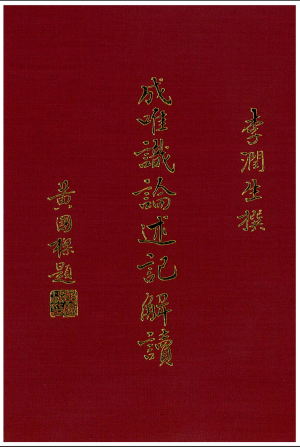 李潤生撰
成唯識論述記解讀
黃國樑題